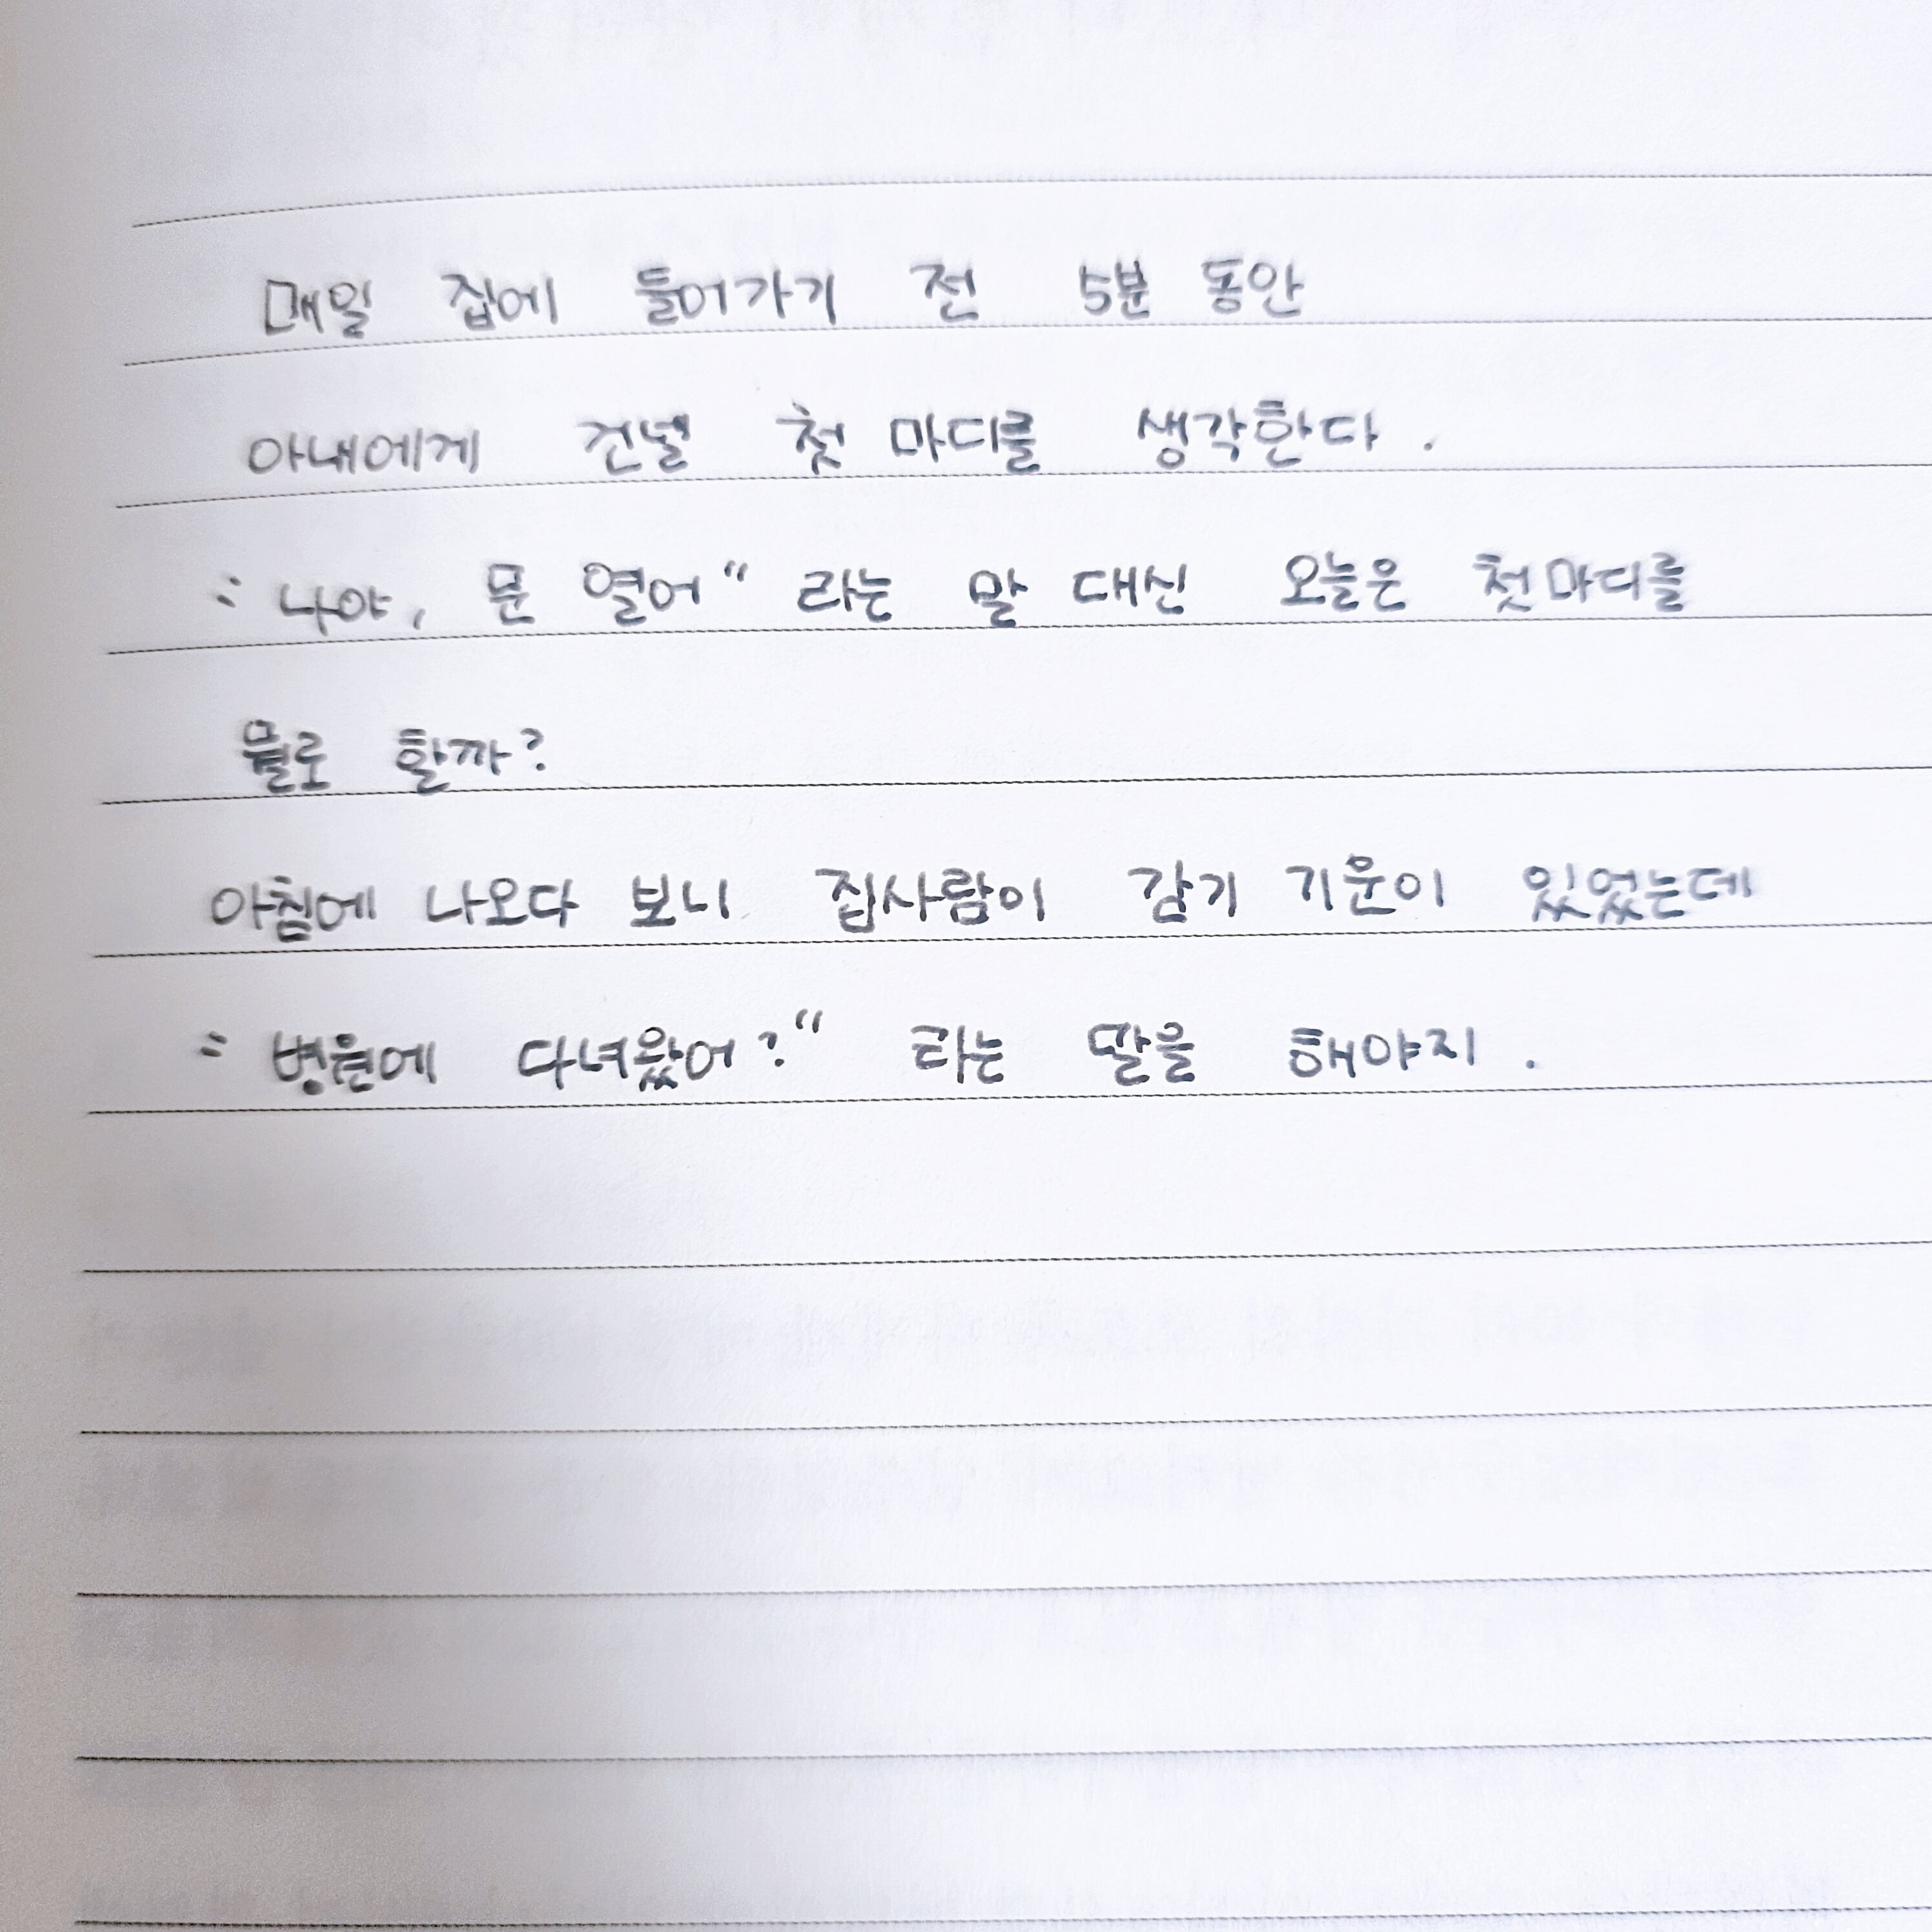 매일 집에 들어가기 전 5분 동안
아내에게 건넬 첫 마디를 생각한다.
"나야, 문 열어" 라는 말 대신 오늘은 첫마디를
뭘로 할까?
아침에 나오다 보니 집사람이 감기 기운이 있었는데
"병원에 다녀왔어?" 라는 말을 해야지.